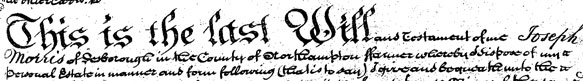 This is the last Will and Testament of me Joseph
Morris of Desborough in the County of Northampton Farmer whereby I dispose of my
personal Estate in manner and form following (that is to say) I give and bequeath unto